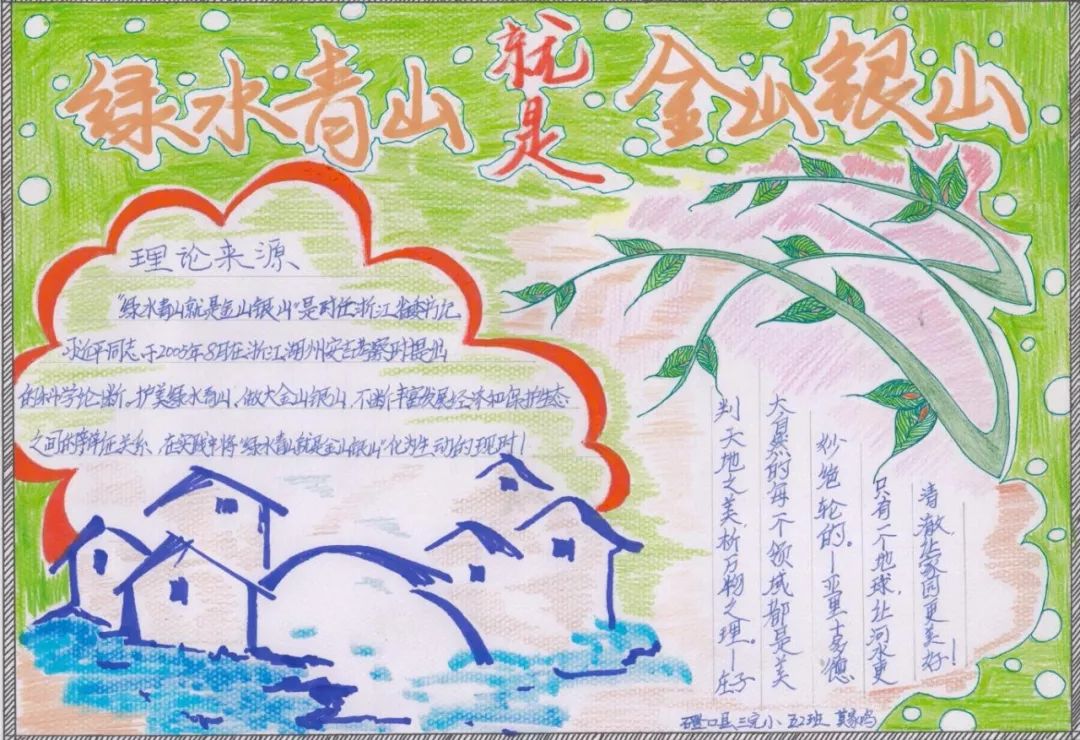 绿水青山就是金山银山
理论来源
"绿水青山就是金山银山"是时任浙江省委书记
习近平同志于2005年8月在浙江湖州安吉考察时提出
的科学论断。护美绿水青山、做大金山银山,不断丰富发展经济和保护生态
之间的辩证关系,在实践中将"绿水青山就是金山银山"化为生动的现时!
判天地之美,析万物之理。—庄子
大自然的每一个领域都是美
妙绝轮的。—亚里士多德
只有一个地球,让河水更
清澈,让家园更美好!
磴口县三完小 五2班